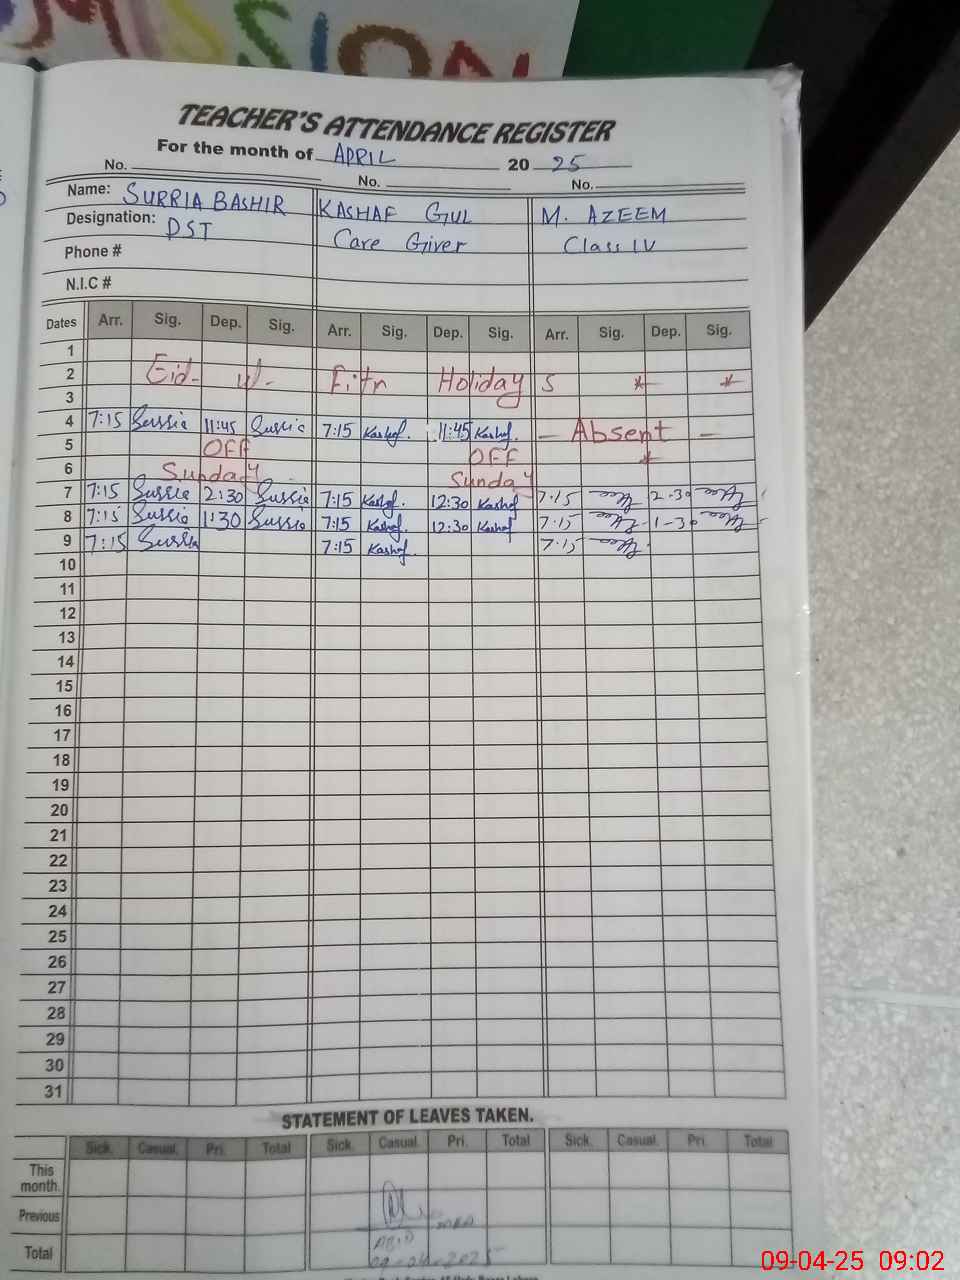 MISSION
TEACHER'S ATTENDANCE REGISTER
For the month of APRIL 20 25
No. No. No.
Name: SURRIA BASHIR KASHAF GUL M. AZEEM
Designation: DST Care Giver Class IV
Phone #
N.I.C #
Dates Arr. Sig. Dep. Sig. Arr. Sig. Dep. Sig. Arr. Sig. Dep. Sig.
1
2 Eid- ul- Fitr Holiday s * *
3
4 7:15 Surria 11:45 Surria 7:15 Kashaf. 11:45 Kashaf. - Absent -
5 OFF OFF *
6 Sunday Sunday
7 7:15 Surria 2:30 Surria 7:15 Kashaf. 12:30 Kashaf 7.15 2-30
8 7:15 Surria 1:30 Surria 7:15 Kashaf. 12:30 Kashaf 7.15 1-30
9 7:15 Surria 7:15 Kashaf. 7.15
10
11
12
13
14
15
16
17
18
19
20
21
22
23
24
25
26
27
28
29
30
31
STATEMENT OF LEAVES TAKEN.
Sick. Casual. Pri. Total Sick. Casual. Pri. Total Sick. Casual. Pri. Total
This month.
Previous
MEA
Total ABID
09-04-2025
09-04-25 09:02